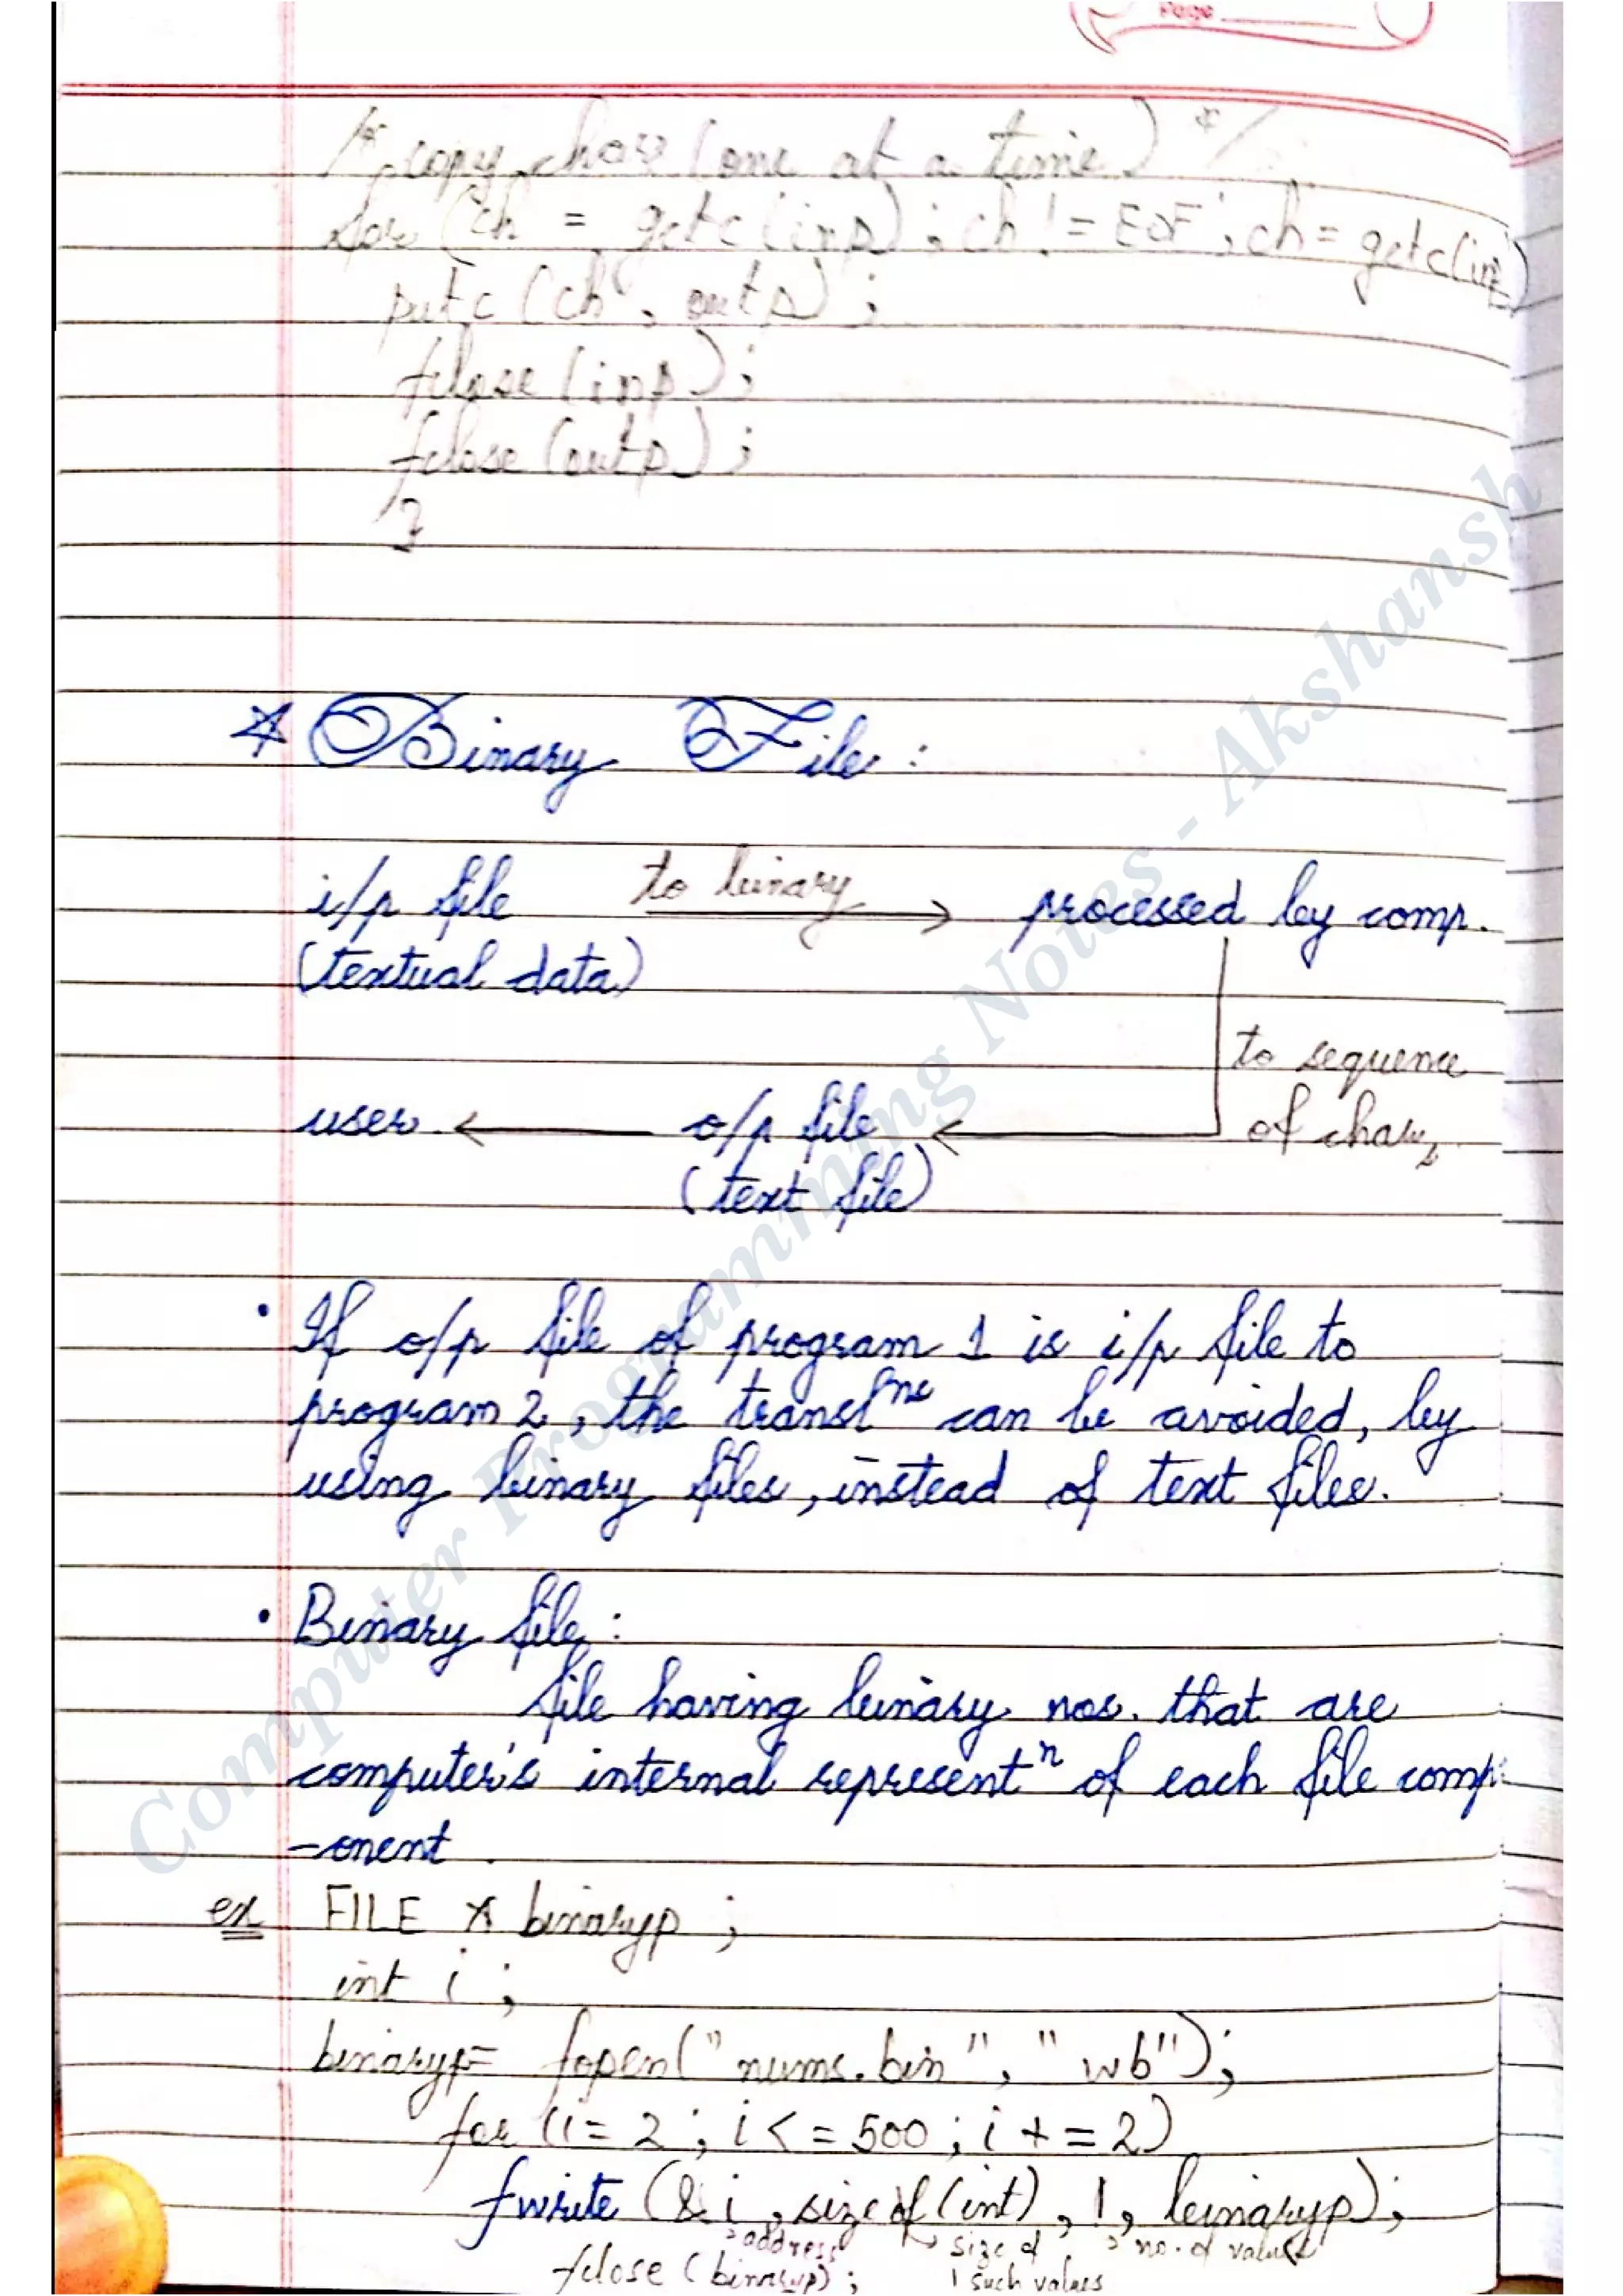 Page
/* copy char (one at a time) */
for (ch = getc(inp); ch != EOF; ch = getc(inp)
putc (ch, outp);
fclose (inp);
fclose (outp);
}
* Binary File :
i/p file to binary processed by comp.
(textual data)
to sequence
user o/p file of chars
(text file)
• If o/p file of program 1 is i/p file to
program 2, the translⁿˢ can be avoided, by
using binary files, instead of text files.
• Binary file :
file having binary nos. that are
computer's internal representⁿ of each file comp
-onent.
ex FILE * binaryp ;
int i ;
binaryp= fopen("nums.bin", "wb");
for (i= 2 ; i <= 500 ; i += 2)
fwrite (&i, sizeof(int), 1, binaryp);
address size of no. of values
fclose (binaryp); 1 such values
Computer Programming Notes - Akshansh